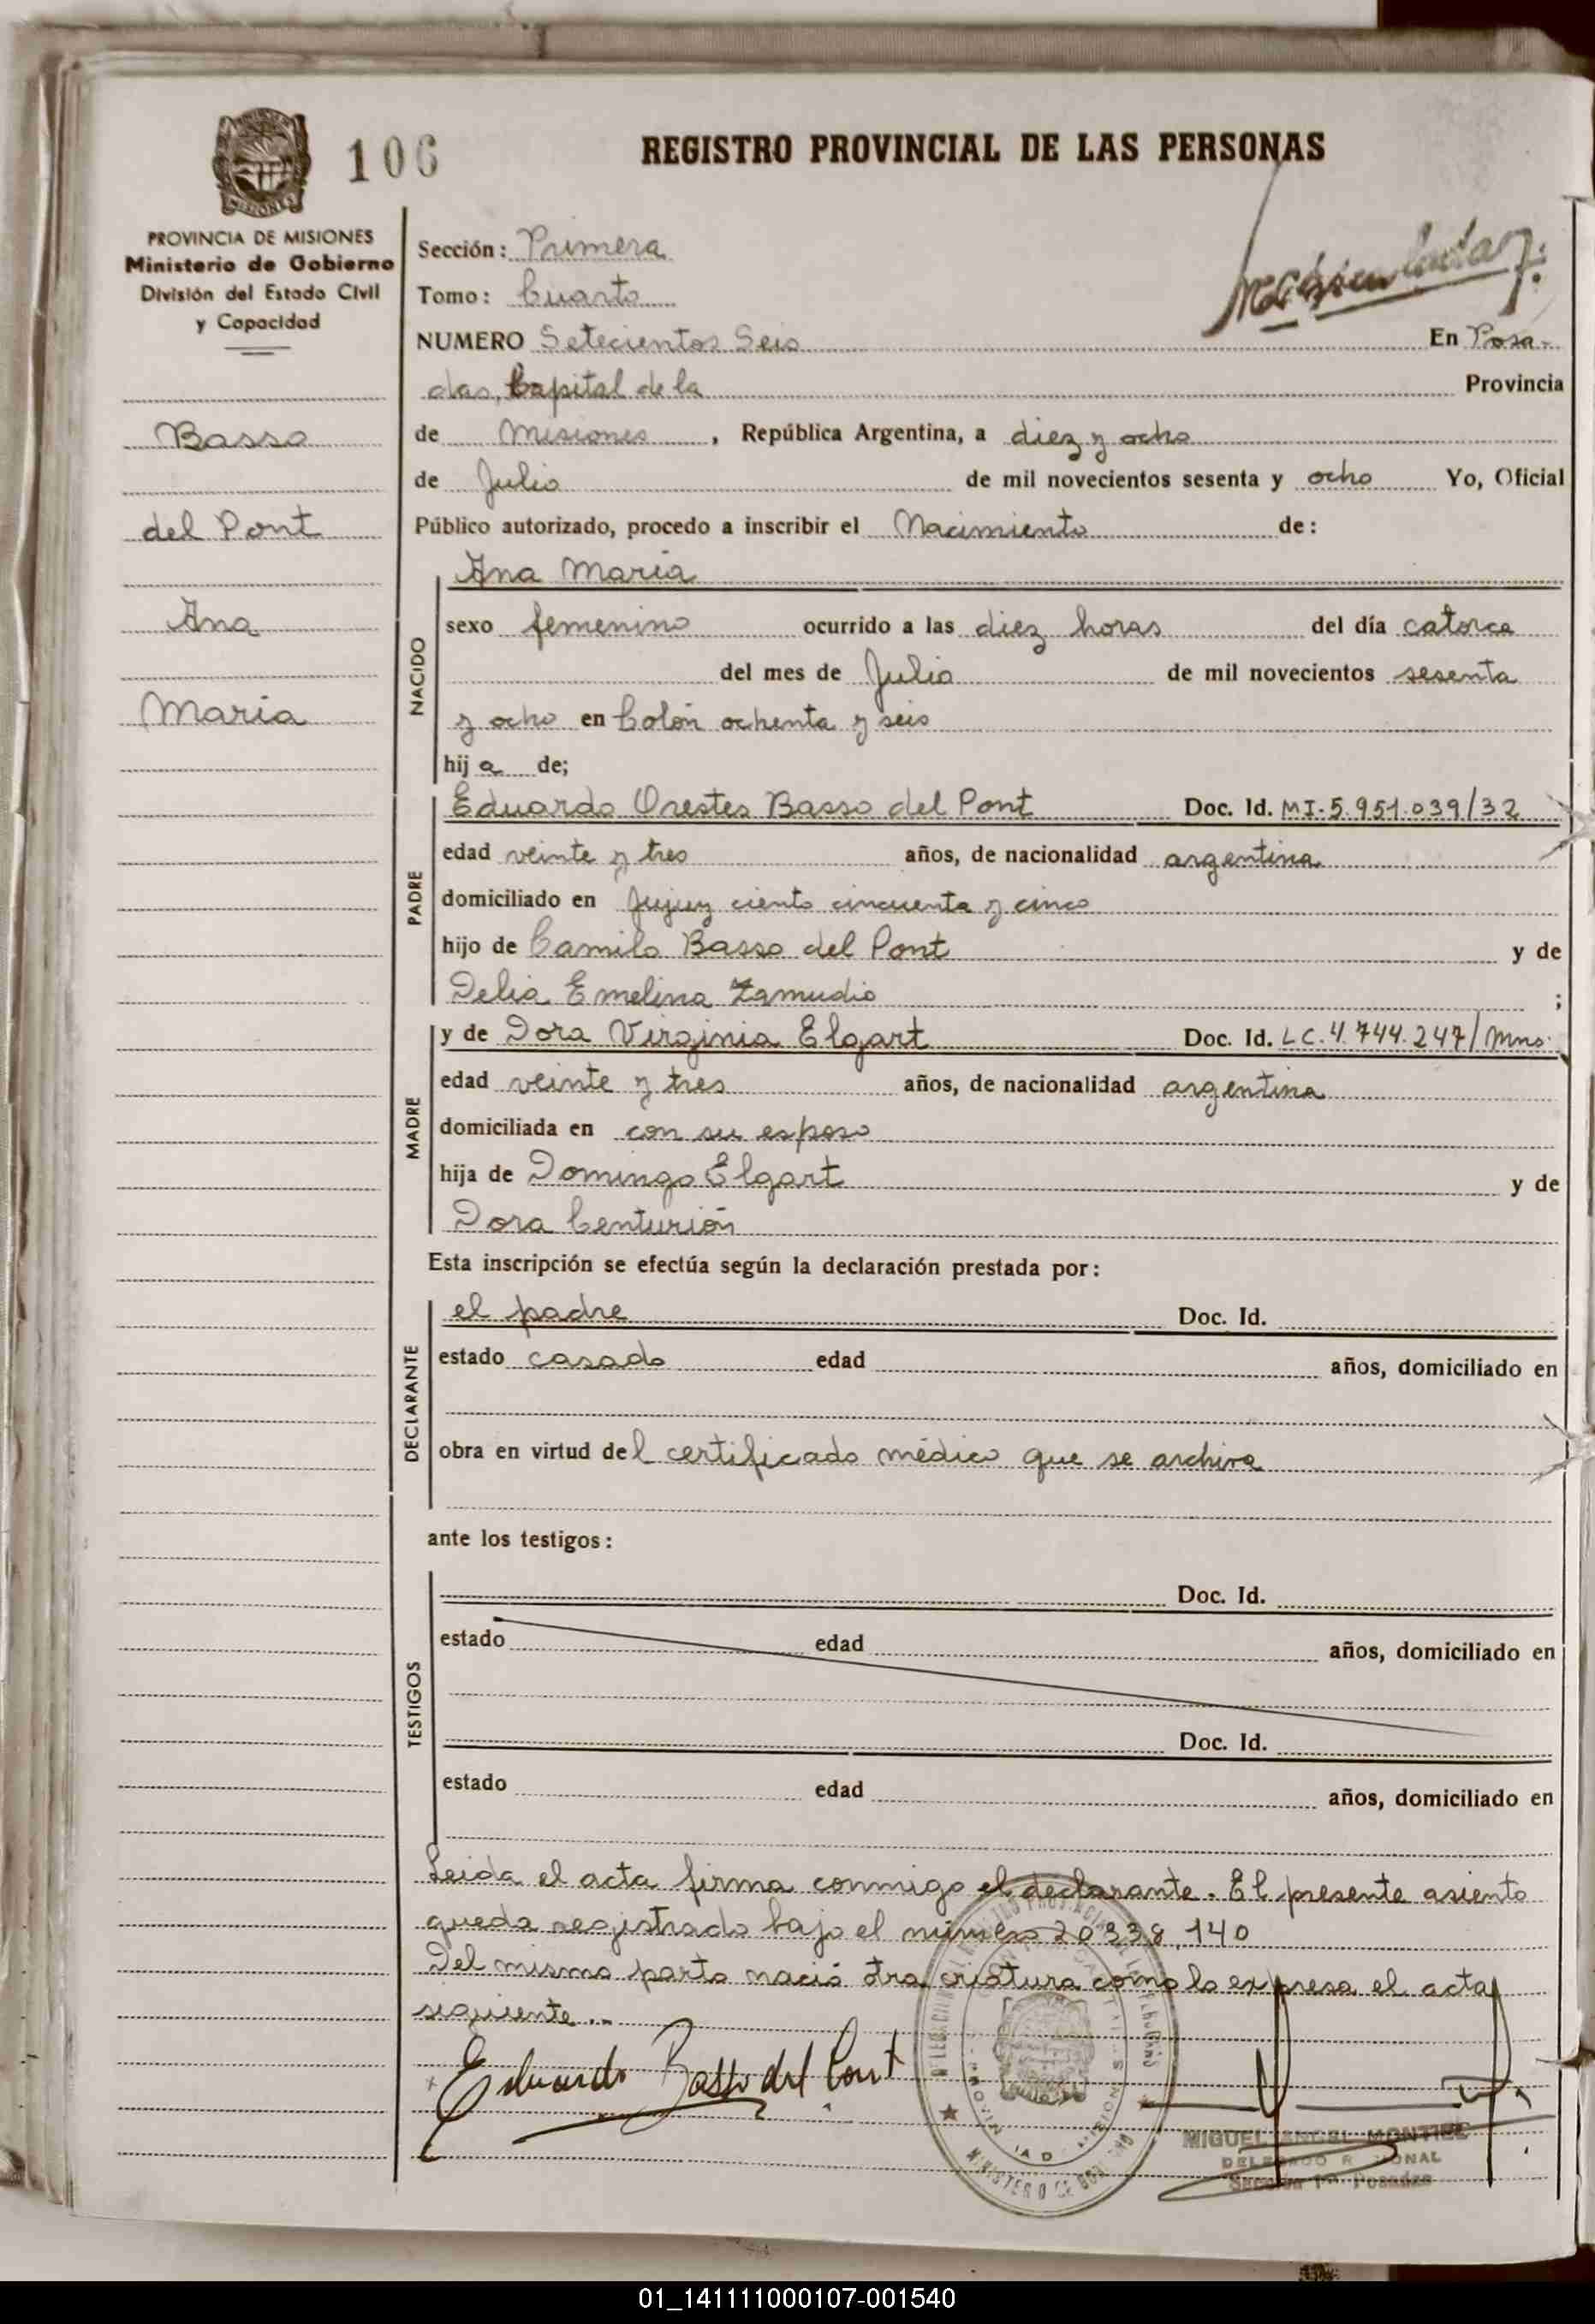 106
REGISTRO PROVINCIAL DE LAS PERSONAS
MISIONES
PROVINCIA DE MISIONES
Ministerio de Gobierno
División del Estado Civil
y Capacidad
Basso
del Pont
Ana
María
Sección: Primera
Tomo: Cuarto
NUMERO Setecientos Seis En Posa-
das, Capital de la Provincia
de Misiones, República Argentina, a diez y ocho
de Julio de mil novecientos sesenta y ocho Yo, Oficial
Público autorizado, procedo a inscribir el Nacimiento de:
NACIDO
Ana María
sexo femenino ocurrido a las diez horas del día catorce
del mes de Julio de mil novecientos sesenta
y ocho en Colón ochenta y seis
hij a de;
PADRE
Eduardo Orestes Basso del Pont Doc. Id. MI-5.951.039/32
edad veinte y tres años, de nacionalidad argentina
domiciliado en Jujuy ciento cincuenta y cinco
hijo de Camilo Basso del Pont y de
Delia Emelina Zamudio ;
MADRE
y de Dora Virginia Elgart Doc. Id. LC.4.744.247/Mns.
edad veinte y tres años, de nacionalidad argentina
domiciliada en con su esposo
hija de Domingo Elgart y de
Dora Centurión
Esta inscripción se efectúa según la declaración prestada por:
DECLARANTE
el padre Doc. Id.
estado casado edad años, domiciliado en
obra en virtud del certificado médico que se archiva
ante los testigos:
TESTIGOS
Doc. Id.
estado edad años, domiciliado en
Doc. Id.
estado edad años, domiciliado en
Leida el acta firma conmigo el declarante. El presente asiento
queda registrado bajo el número 20.338.140
Del mismo parto nació otra criatura como lo expresa el acta
siguiente..-
Eduardo Basso del Pont
MIGUEL ANGEL MONTIEL
DELEGADO REGIONAL
Sección 1ra. Posadas
01_141111000107-001540